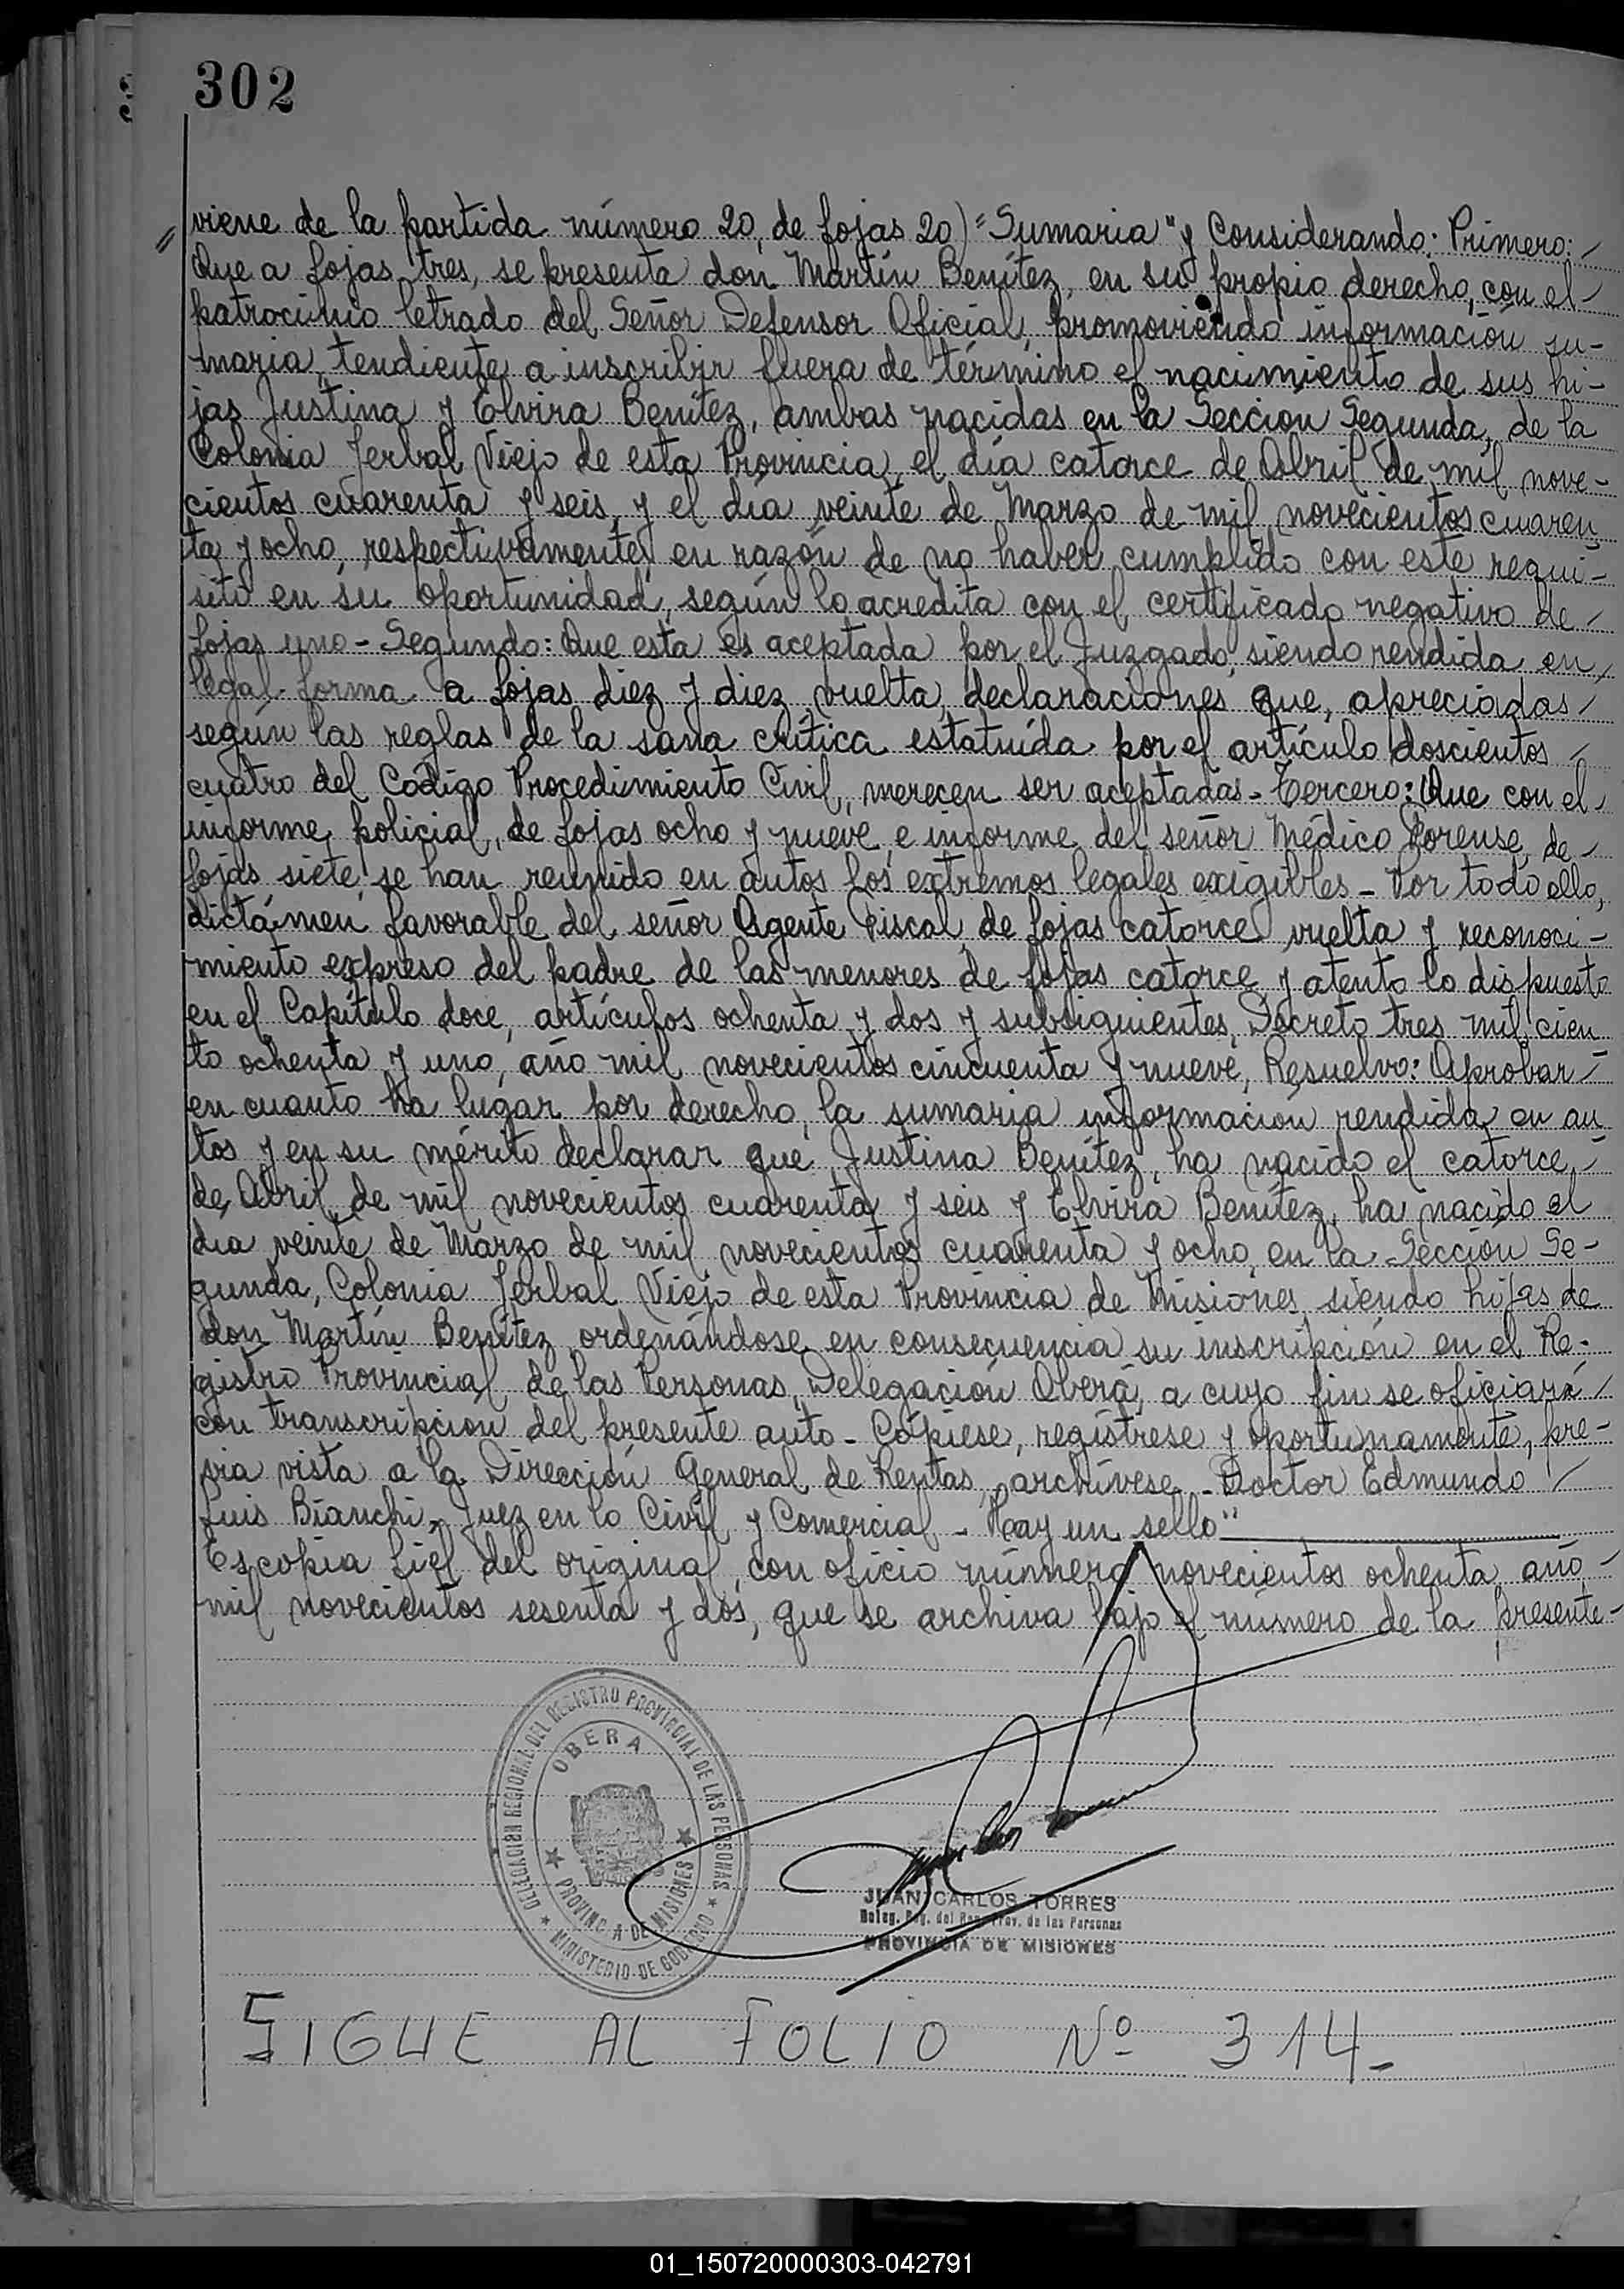 302
viene de la partida número 20, de fojas 20) "Sumaria" y Considerando: Primero:
Que a fojas tres, se presenta don Martín Benítez, en su propio derecho, con el
patrocinio letrado del Señor Defensor Oficial, promoviendo información su-
maria, tendiente a inscribir fuera de término el nacimiento de sus hi-
jas Justina y Elvira Benítez, ambas nacidas en la Sección Segunda, de la
Colonia Yerbal Viejo de esta Provincia, el día catorce de Abril de mil nove-
cientos cuarenta y seis, y el día veinte de Marzo de mil novecientos cuaren
ta y ocho, respectivamente, en razón de no haber cumplido con este requi-
sito en su oportunidad, según lo acredita con el certificado negativo de
fojas uno - Segundo: Que esta es aceptada por el Juzgado siendo rendida en
legal forma a fojas diez y diez vuelta, declaraciones que, apreciadas
según las reglas de la sana crítica estatuída por el artículo doscientos
cuatro del Código Procedimiento Civil, merecen ser aceptadas - Tercero: Que con el
informe policial, de fojas ocho y nueve, e informe del señor Médico Forense, de
fojas siete, se han reunido en autos los extremos legales exigibles - Por todo ello,
dictámen favorable del señor Agente Fiscal, de fojas catorce vuelta y reconoci-
miento expreso del padre de las menores de fojas catorce y atento lo dispuesto
en el Capítulo doce, artículos ochenta y dos y subsiguientes, Decreto tres mil cien
to ochenta y uno, año mil novecientos cincuenta y nueve, Resuelvo: Aprobar
en cuanto ha lugar por derecho, la sumaria información rendida en au
tos y en su mérito declarar que Justina Benítez, ha nacido el catorce
de Abril de mil novecientos cuarenta y seis y Elvira Benítez, ha nacido el
día veinte de Marzo de mil novecientos cuarenta y ocho, en la Sección Se-
gunda, Colonia Yerbal Viejo de esta Provincia de Misiones, siendo hijas de
don Martín Benítez, ordenándose en consecuencia su inscripción en el Re-
gistro Provincial de las Personas, Delegación Oberá, a cuyo fin se oficiará
con transcripción del presente auto - Cópiese, regístrese y oportunamente, pre-
via vista a la Dirección General de Rentas, archívese - Doctor Edmundo
Luis Bianchi, Juez en lo Civil y Comercial - Hay un sello"
Es copia fiel del original, con oficio número novecientos ochenta, año
mil novecientos sesenta y dos, que se archiva bajo el número de la presente-
DELEGACIÓN REGIONAL DEL REGISTRO PROVINCIAL DE LAS PERSONAS
OBERA
PROVINCIA DE MISIONES
MINISTERIO DE GOBIERNO
JUAN CARLOS TORRES
Deleg. Reg. del Reg. Prov. de las Personas
PROVINCIA DE MISIONES
SIGUE AL FOLIO Nº 314-
01_150720000303-042791